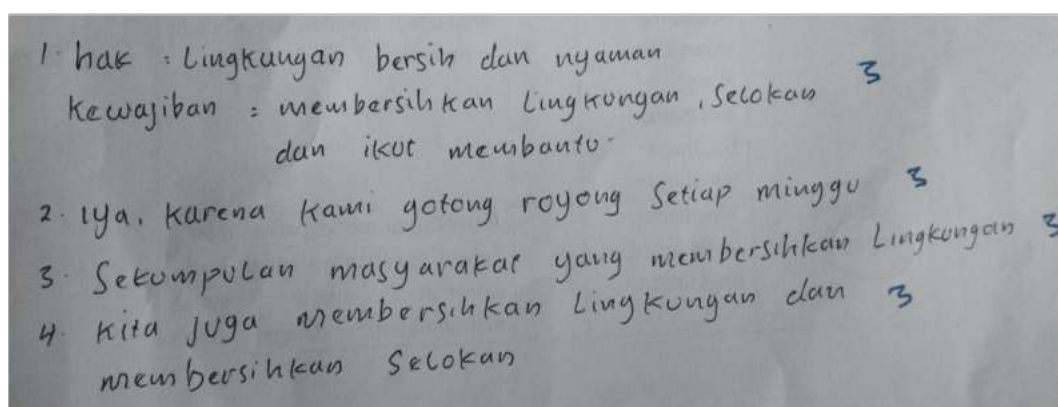 1. hak : Lingkungan bersih dan nyaman
Kewajiban : membersihkan Lingkungan, Selokan 3
dan ikut membantu.
2. Iya, karena kami gotong royong Setiap minggu 3
3. Sekumpulan masyarakat yang membersihkan Lingkungan 3
4. Kita juga membersihkan Lingkungan dan 3
membersihkan Selokan